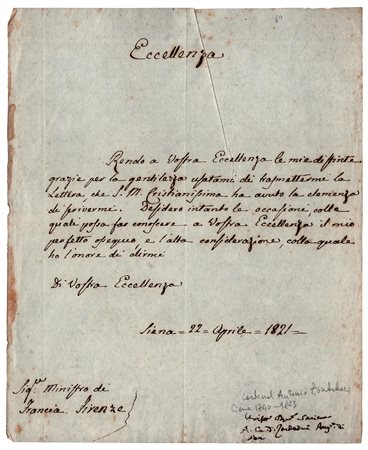 60
Eccellenza
Rendo a Vostra Eccellenza le mie distinte
grazie per la gentilezza usatami di trasmettermi la
Lettera che S. M. Cristianissima ha avuto la clemenza
di scrivermi. Desidero intanto le occasioni, colle
quali possa far conoscere a Vostra Eccellenza il mio
perfetto ossequio e l'alta considerazione, colla quale
ho l'onore di dirmi
Di Vostra Eccellenza
Siena = 22 = Aprile = 1821 =
Sig.r Ministro di
Francia. Firenze
Cardinal Antonio Zondadari
Siena 1740-1823
A. Cardl Zondadari